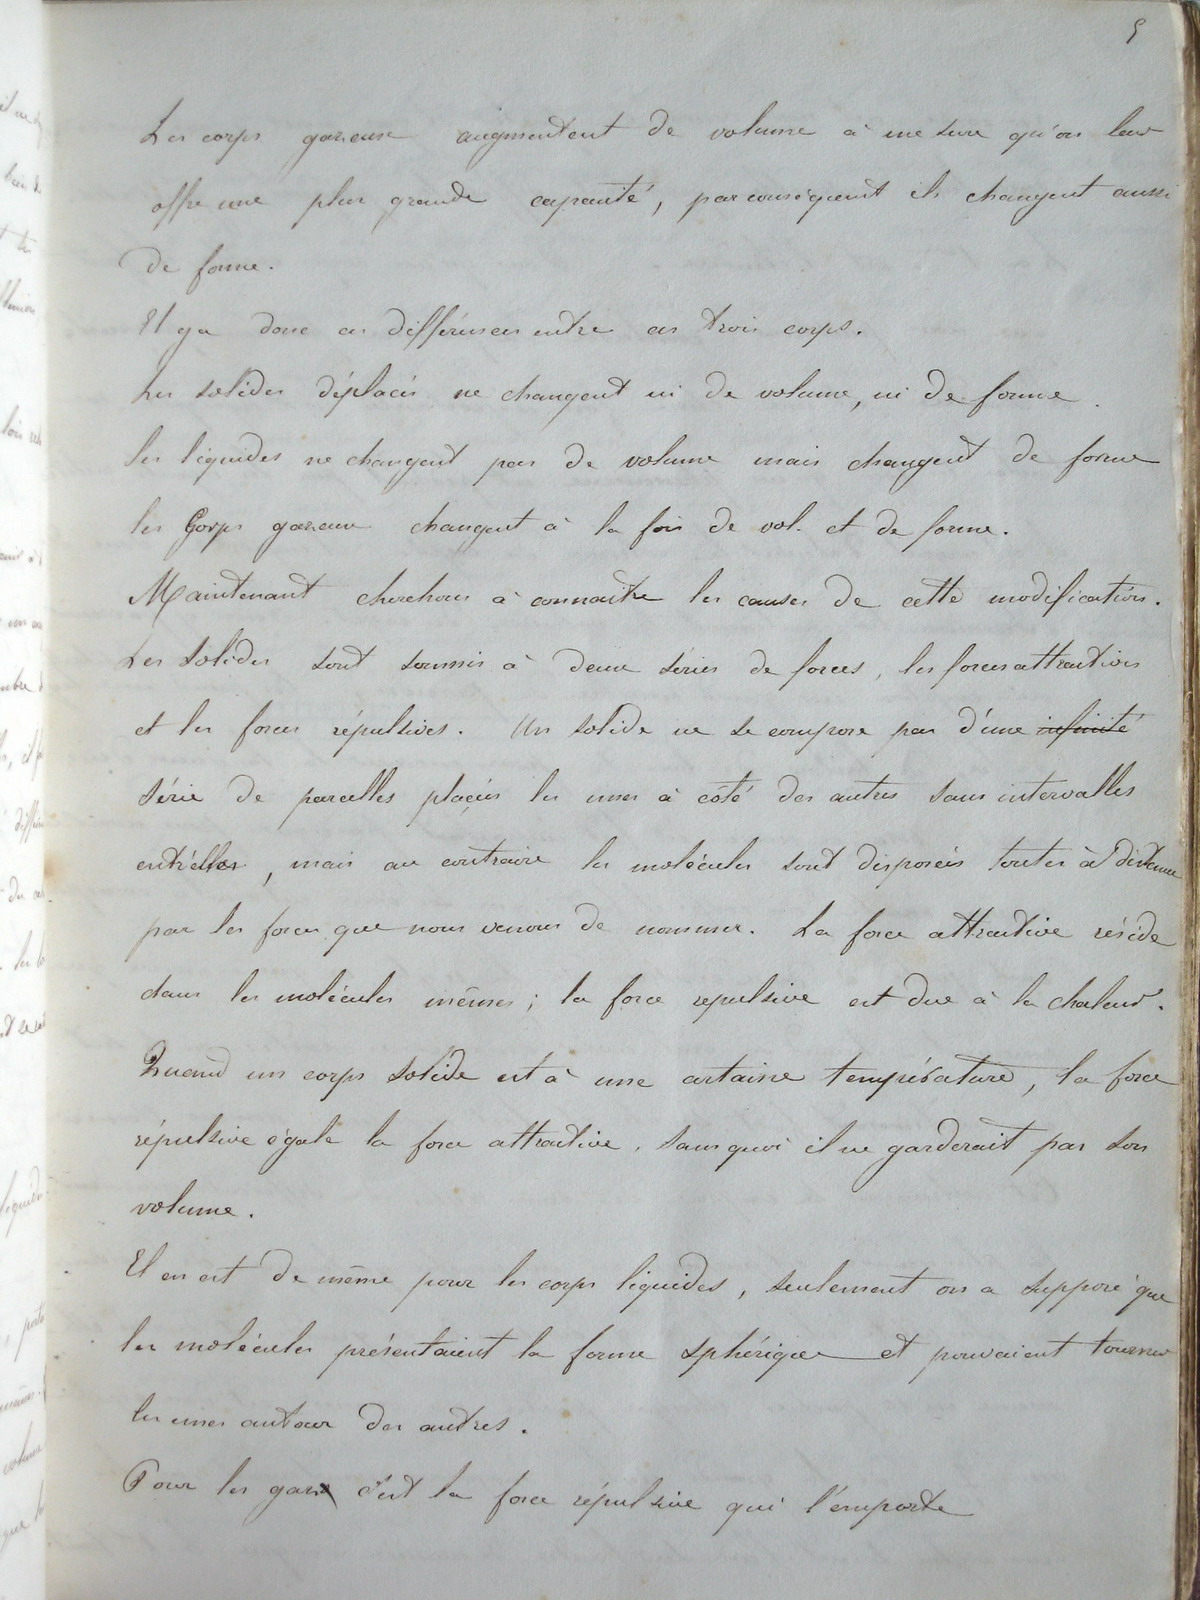 5
Les corps gazeux augmentent de volume à mesure qu'on leur
offre une plus grande capacité, par conséquent ils changent aussi
de forme.
Il y a donc ces différences entre ces trois corps.
Les solides déplacés ne changent ni de volume, ni de forme.
les liquides ne changent pas de volume mais changent de forme
les Corps gazeux changent à la fois de vol. et de forme.
Maintenant cherchons à connaître les causes de cette modification.
Les solides sont soumis à deux séries de forces, les forces attractives
et les forces répulsives. Un solide ne se compose pas d'une infinité
série de parcelles placées les unes à côté des autres sans intervalles
entr'elles, mais au contraire les molécules sont disposées toutes à distance
par les forces que nous venons de nommer. La force attractive réside
dans les molécules mêmes; la force repulsive est due à la chaleur.
Quand un corps solide est à une certaine température, la force
répulsive égale la force attractive, sans quoi il ne garderait pas son
volume.
Il en est de même pour les corps liquides, seulement on a supposé que
les molécules présentaient la forme sphérique et pouvaient tourner
les unes autour des autres.
Pour les gaz c'est la force répulsive qui l'emporte